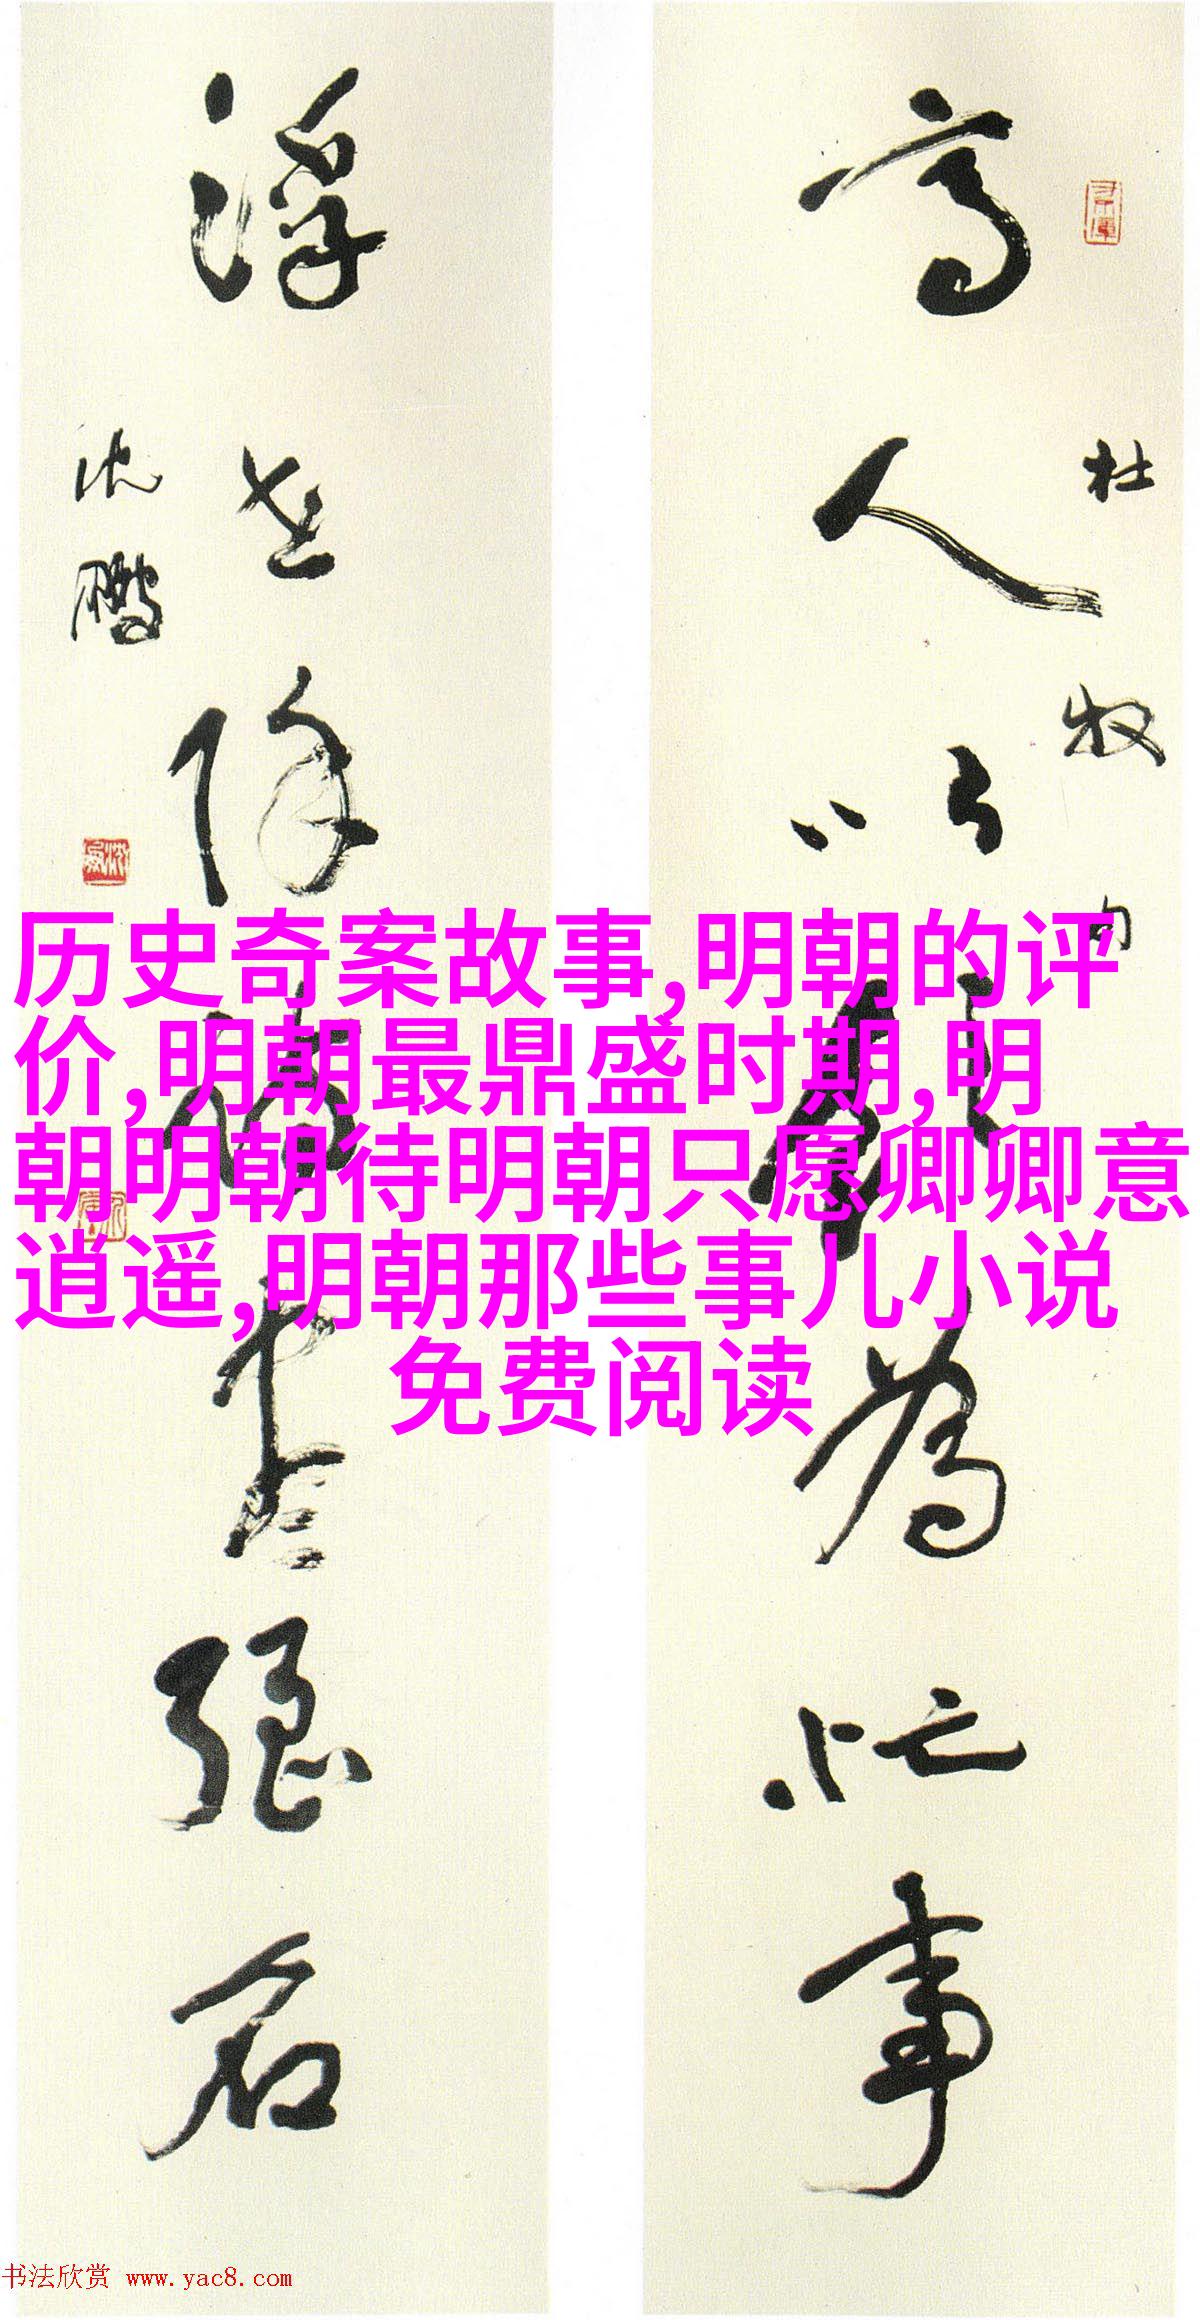 杜牧句
高人以飲為忙事
浮世除詩盡強名
沈鵬
历史奇案故事,明朝的评
价,明朝最鼎盛时期,明
朝明朝待明朝只愿卿卿意
逍遥,明朝那些事儿小说
免费阅读
书法欣赏 www.yac8.com